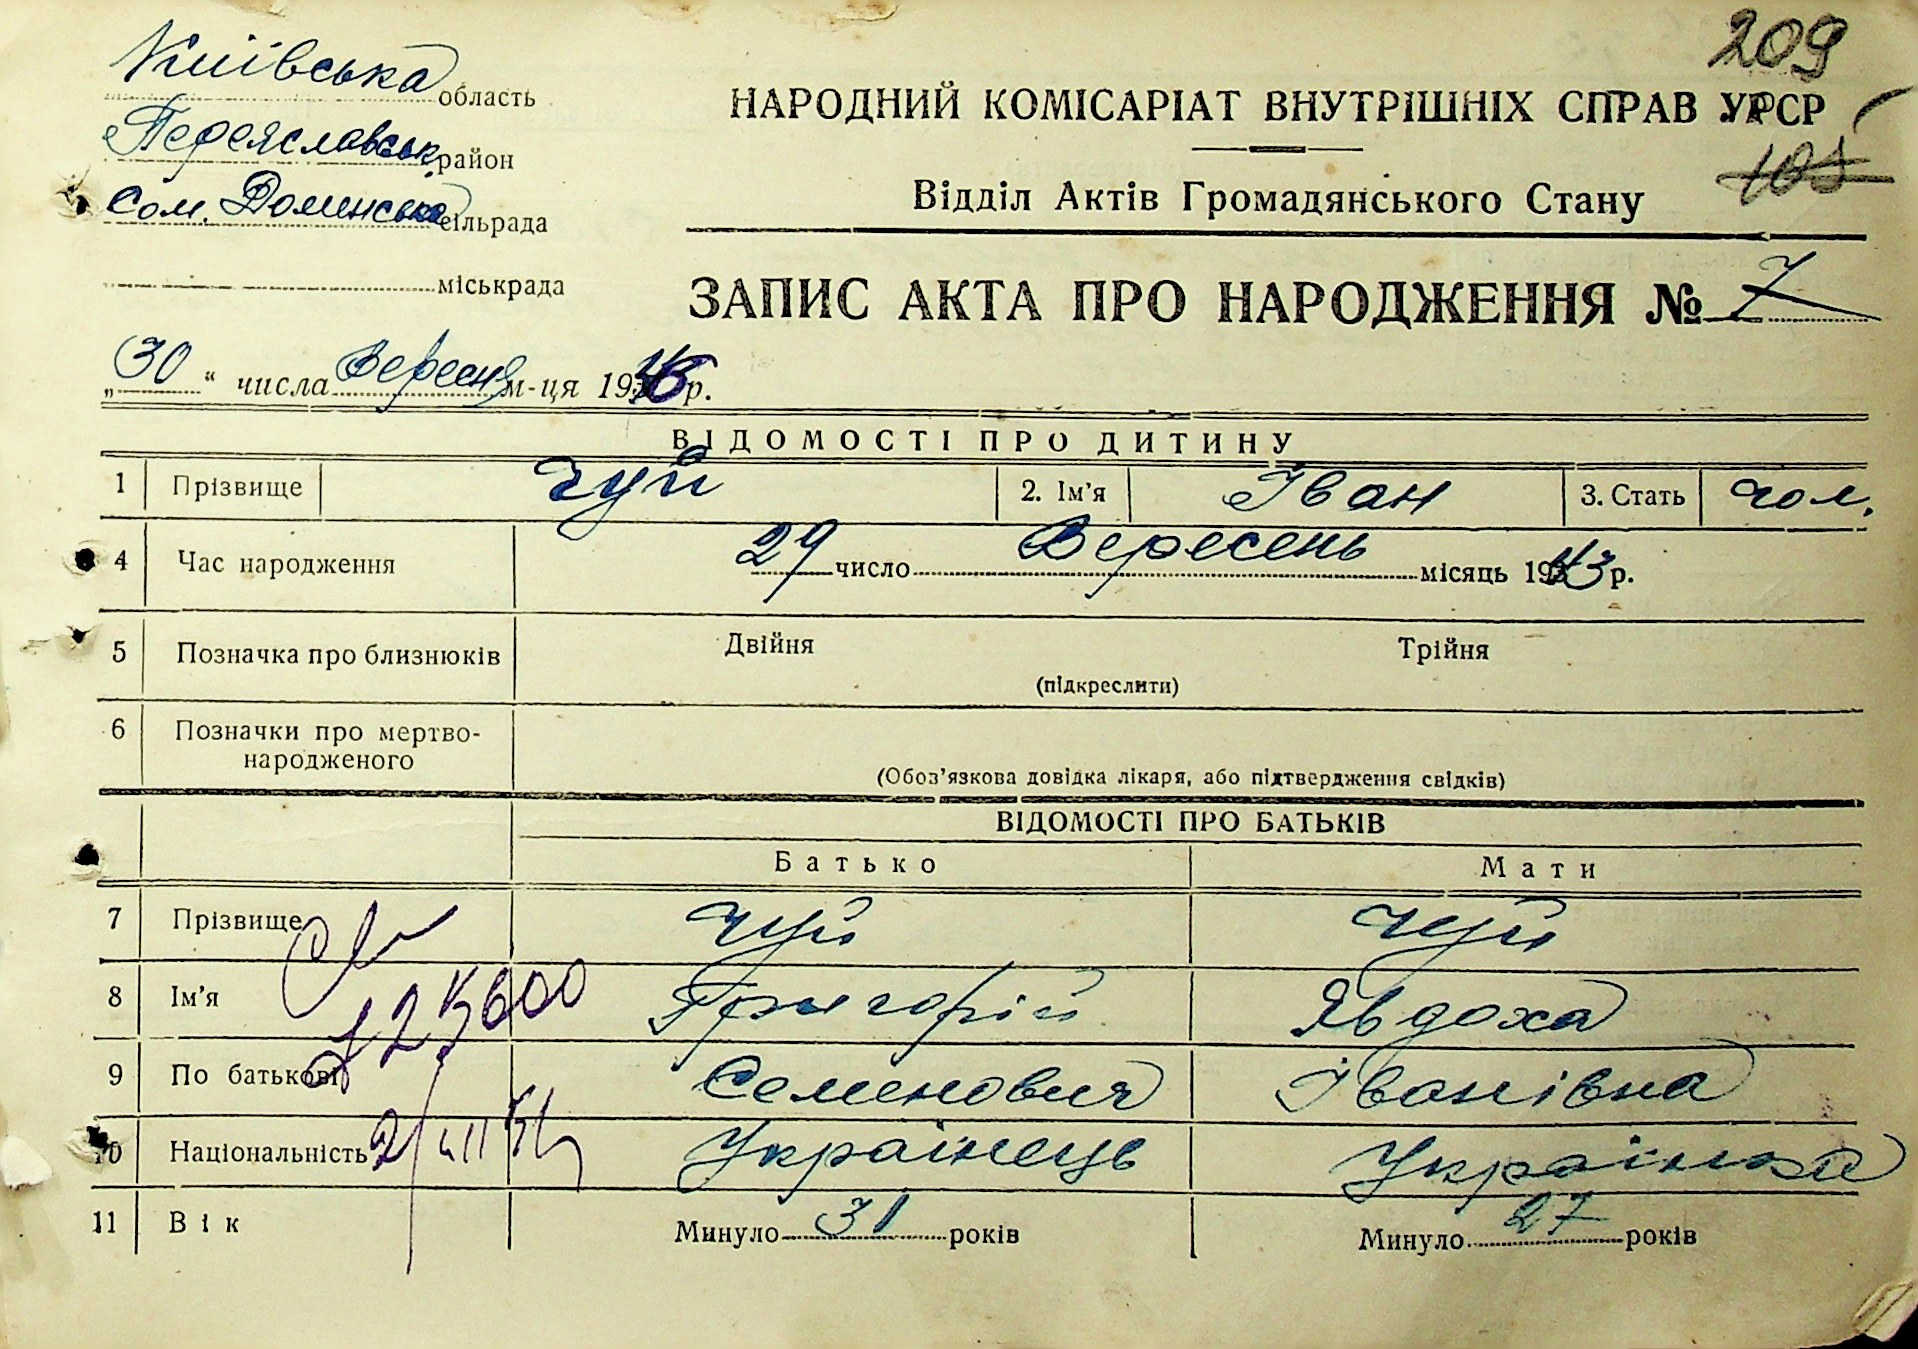 209
Київська область
НАРОДНИЙ КОМІСАРІАТ ВНУТРІШНІХ СПРАВ УРСР
Переяславськ. район
105
Сом. Долинська сільрада
Відділ Актів Громадянського Стану
міськрада
ЗАПИС АКТА ПРО НАРОДЖЕННЯ № 7
„30“ числа Вересня м-ця 194 р.
ВІДОМОСТІ ПРО ДИТИНУ
1 Прізвище Чуй 2. Ім'я Іван 3. Стать чол.
4 Час народження 29 число Вересень місяць 1943 р.
5 Позначка про близнюків Двійня Трійня
(підкреслити)
6 Позначки про мертво-
народженого
(Обов'язкова довідка лікаря, або підтвердження свідків)
ВІДОМОСТІ ПРО БАТЬКІВ
Батько Мати
7 Прізвище Чуй Чуй
8 Ім'я Григорій Явдоха
9 По батькові Семенович Іванівна
10 Національність Українець Українка
11 Вік Минуло 31 років Минуло 27 років